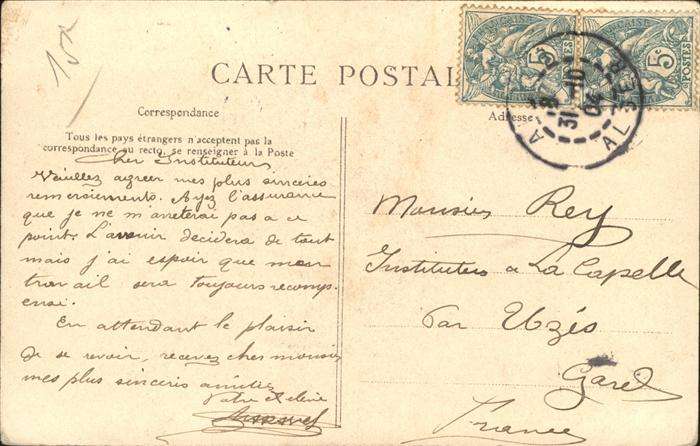 15a
CARTE POSTAL
Correspondance
Adresse
Tous les pays étrangers n'acceptent pas la
correspondance au recto, se renseigner à la Poste
FRANÇAISE
5c
POSTES
5c
POSTES
31 10 04
ALGER
Cher Instituteur
Veuillez agreer mes plus sinceres
remerciements. Ayez l'assurance
que je ne m'arreterai pas a ce
point. L'avenir decidera de tout
mais j'ai espoir que mon
travail sera toujours recomp
ensé.
En attendant le plaisir
de se revoir, recevez cher monsieur
mes plus sinceres amitiés
Votre et eleve
Monsieur Rey
Instituteur a La Capelle
Par Uzés
Gard
France